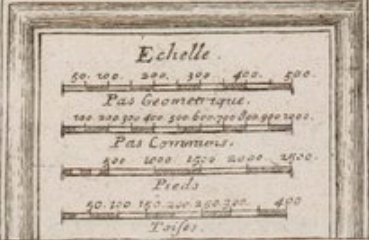 Echelle.
50. 100. 200. 300. 400. 500.
Pas Geometrique.
100. 200. 300. 400. 500. 600. 700. 800. 900. 1000.
Pas Communs.
500 1000 1500 2000 2500.
Pieds
50. 100. 150. 200. 250. 300. 400
Toises.